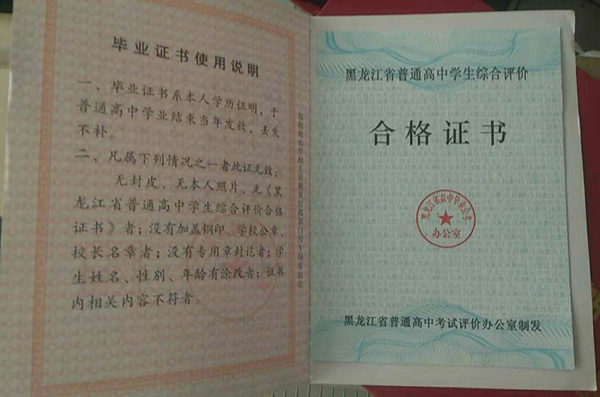 毕业证书使用说明
一、毕业证书系本人学历证明，于
普通高中学业结束当年发放，丢失
不补。
二、凡属下列情况之一者此证无效：
无封皮、无本人照片、无《黑
龙江省普通高中学生综合评价合格
证书》者；没有加盖钢印、学校公章、
校长名章者；没有专用章封讫者；学
生姓名、性别、年龄有涂改者；证书
内相关内容不符者。
黑龙江省普通高中学生综合评价
合格证书
办公室
黑龙江省普通高中考试评价办公室制发